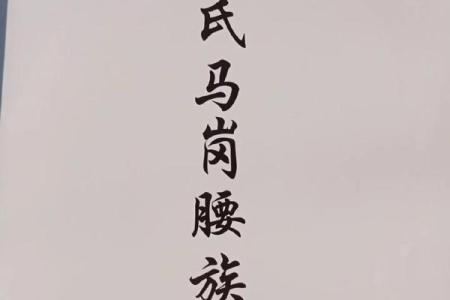 氏马岗腰族